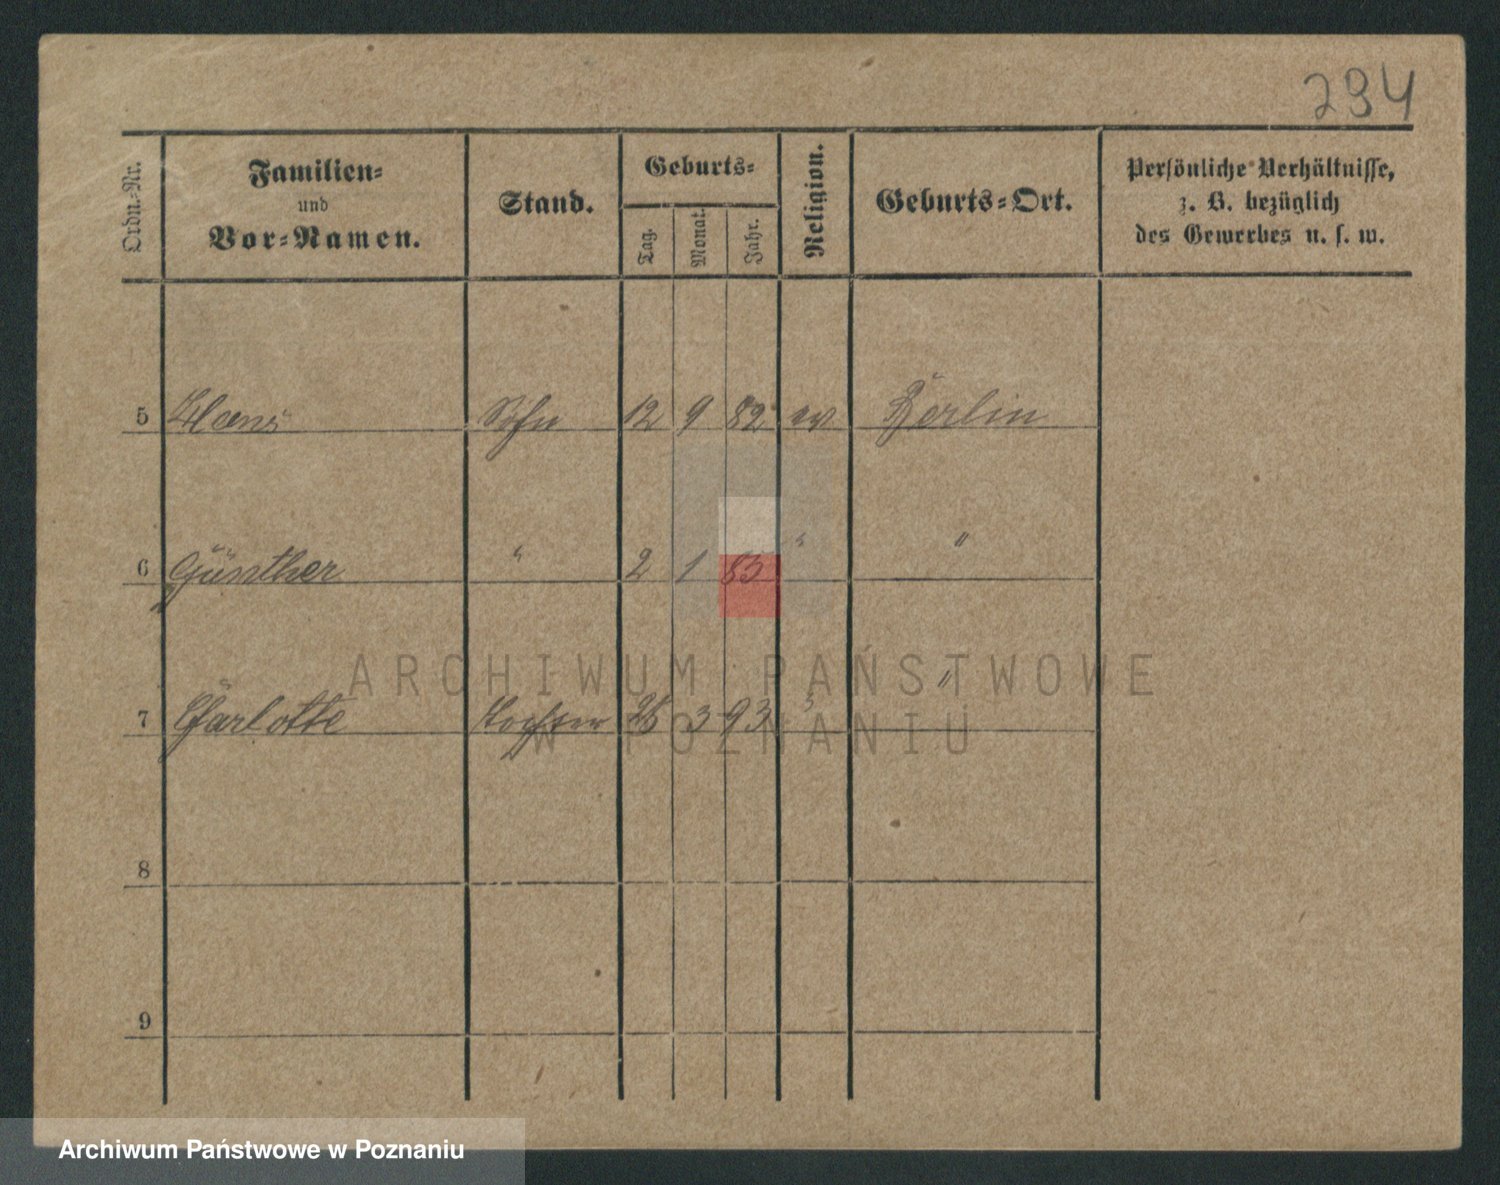 294
Ordn.-Nr.
Familien-
und
Vor-Namen.
Stand.
Geburts-
Tag.
Monat.
Jahr.
Religion.
Geburts-Ort.
Persönliche Verhältnisse,
z. B. bezüglich
des Gewerbes u. s. w.
5 Hans Sohn 12 9 82 ev Berlin
6 Günther " 2 1 85 " "
7 Charlotte Tochter 3 93 " "
8
9
ARCHIWUM PAŃSTWOWE
W POZNANIU
Archiwum Państwowe w Poznaniu